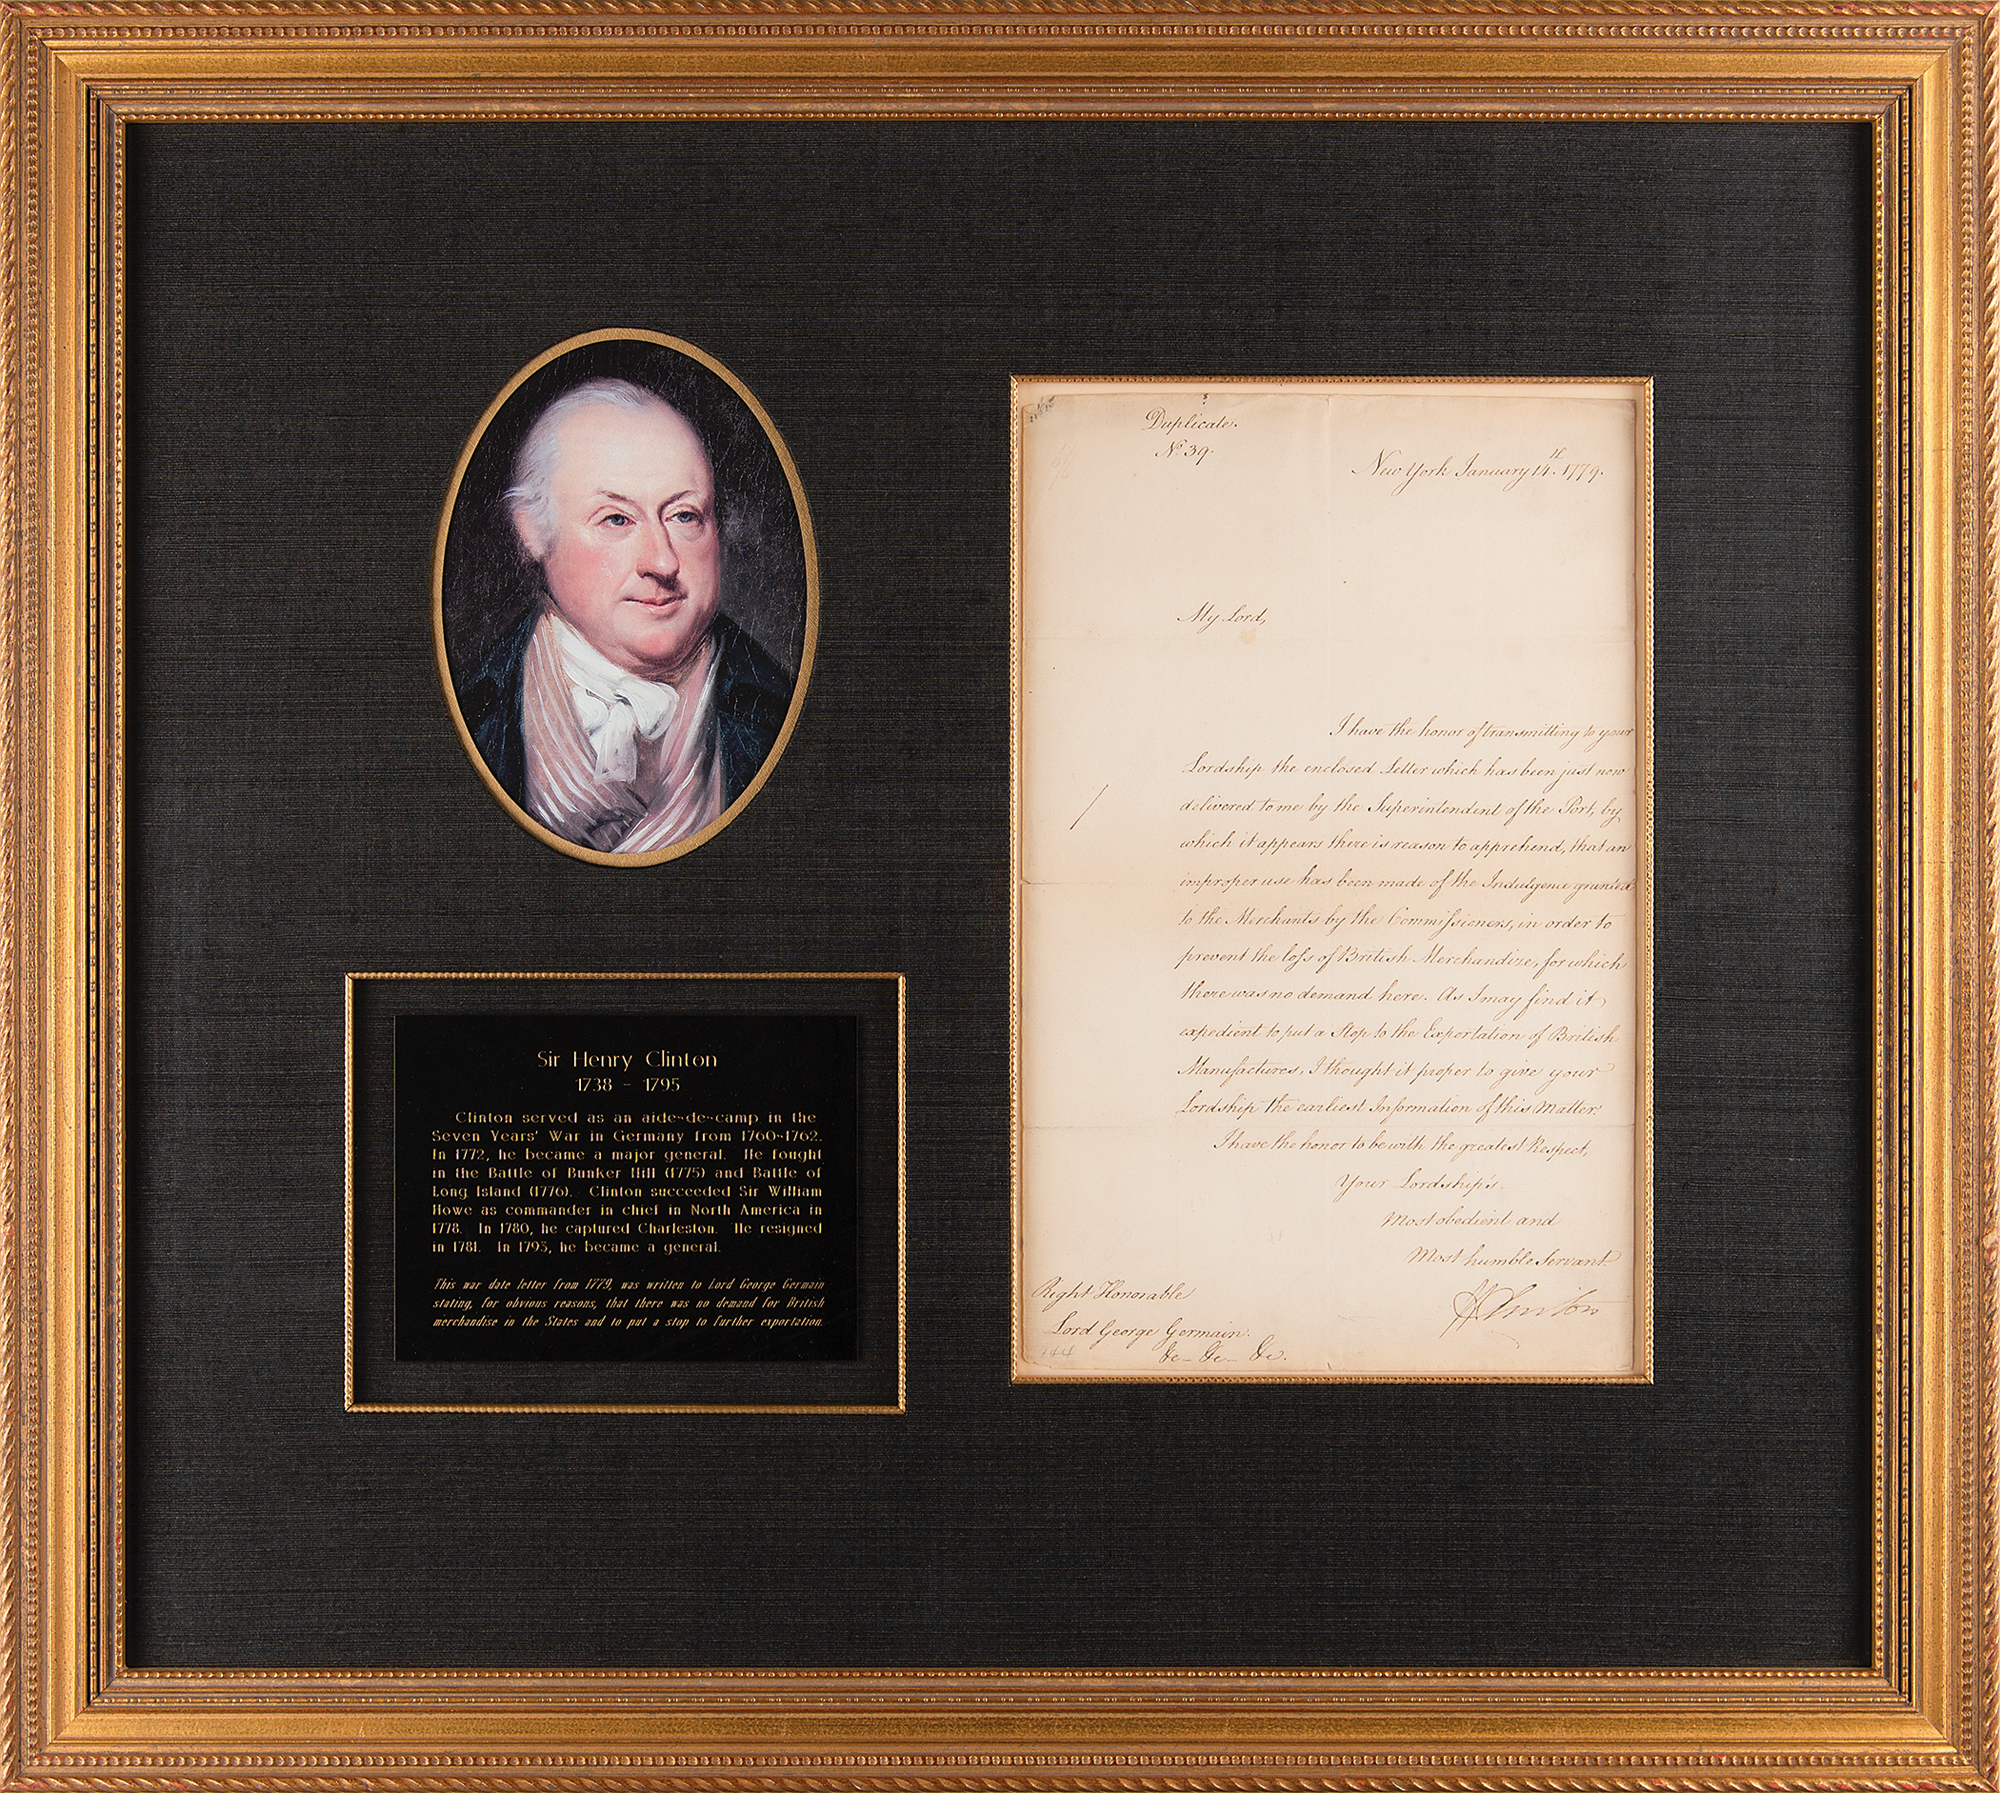 Sir Henry Clinton
1738 - 1795
Clinton served as an aide-de-camp in the
Seven Years' War in Germany from 1760-1762.
In 1772, he became a major general. He fought
in the Battle of Bunker Hill (1775) and Battle of
Long Island (1776). Clinton succeeded Sir William
Howe as commander in chief in North America in
1778. In 1780, he captured Charleston. He resigned
in 1781. In 1793, he became a general.
This war date letter from 1779, was written to Lord George Germain
stating, for obvious reasons, that there was no demand for British
merchandise in the States and to put a stop to further exportation.
Duplicate.
No. 39.
New York January 14th. 1779.
My Lord,
I have the honor of transmitting to your
Lordship the enclosed Letter which has been just now
delivered to me by the Superintendent of the Port, by
which it appears there is reason to apprehend, that an
improper use has been made of the Indulgence granted
to the Merchants by the Commissioners, in order to
prevent the loss of British Merchandize, for which
there was no demand here. As I may find it
expedient to put a Stop to the Exportation of British
Manufactures, I thought it proper to give your
Lordship the earliest Information of this Matter.
I have the honor to be with the greatest Respect,
Your Lordship's
Most obedient and
Most humble Servant
HClinton
Right Honorable
Lord George Germain.
&c- &c- &c.
144